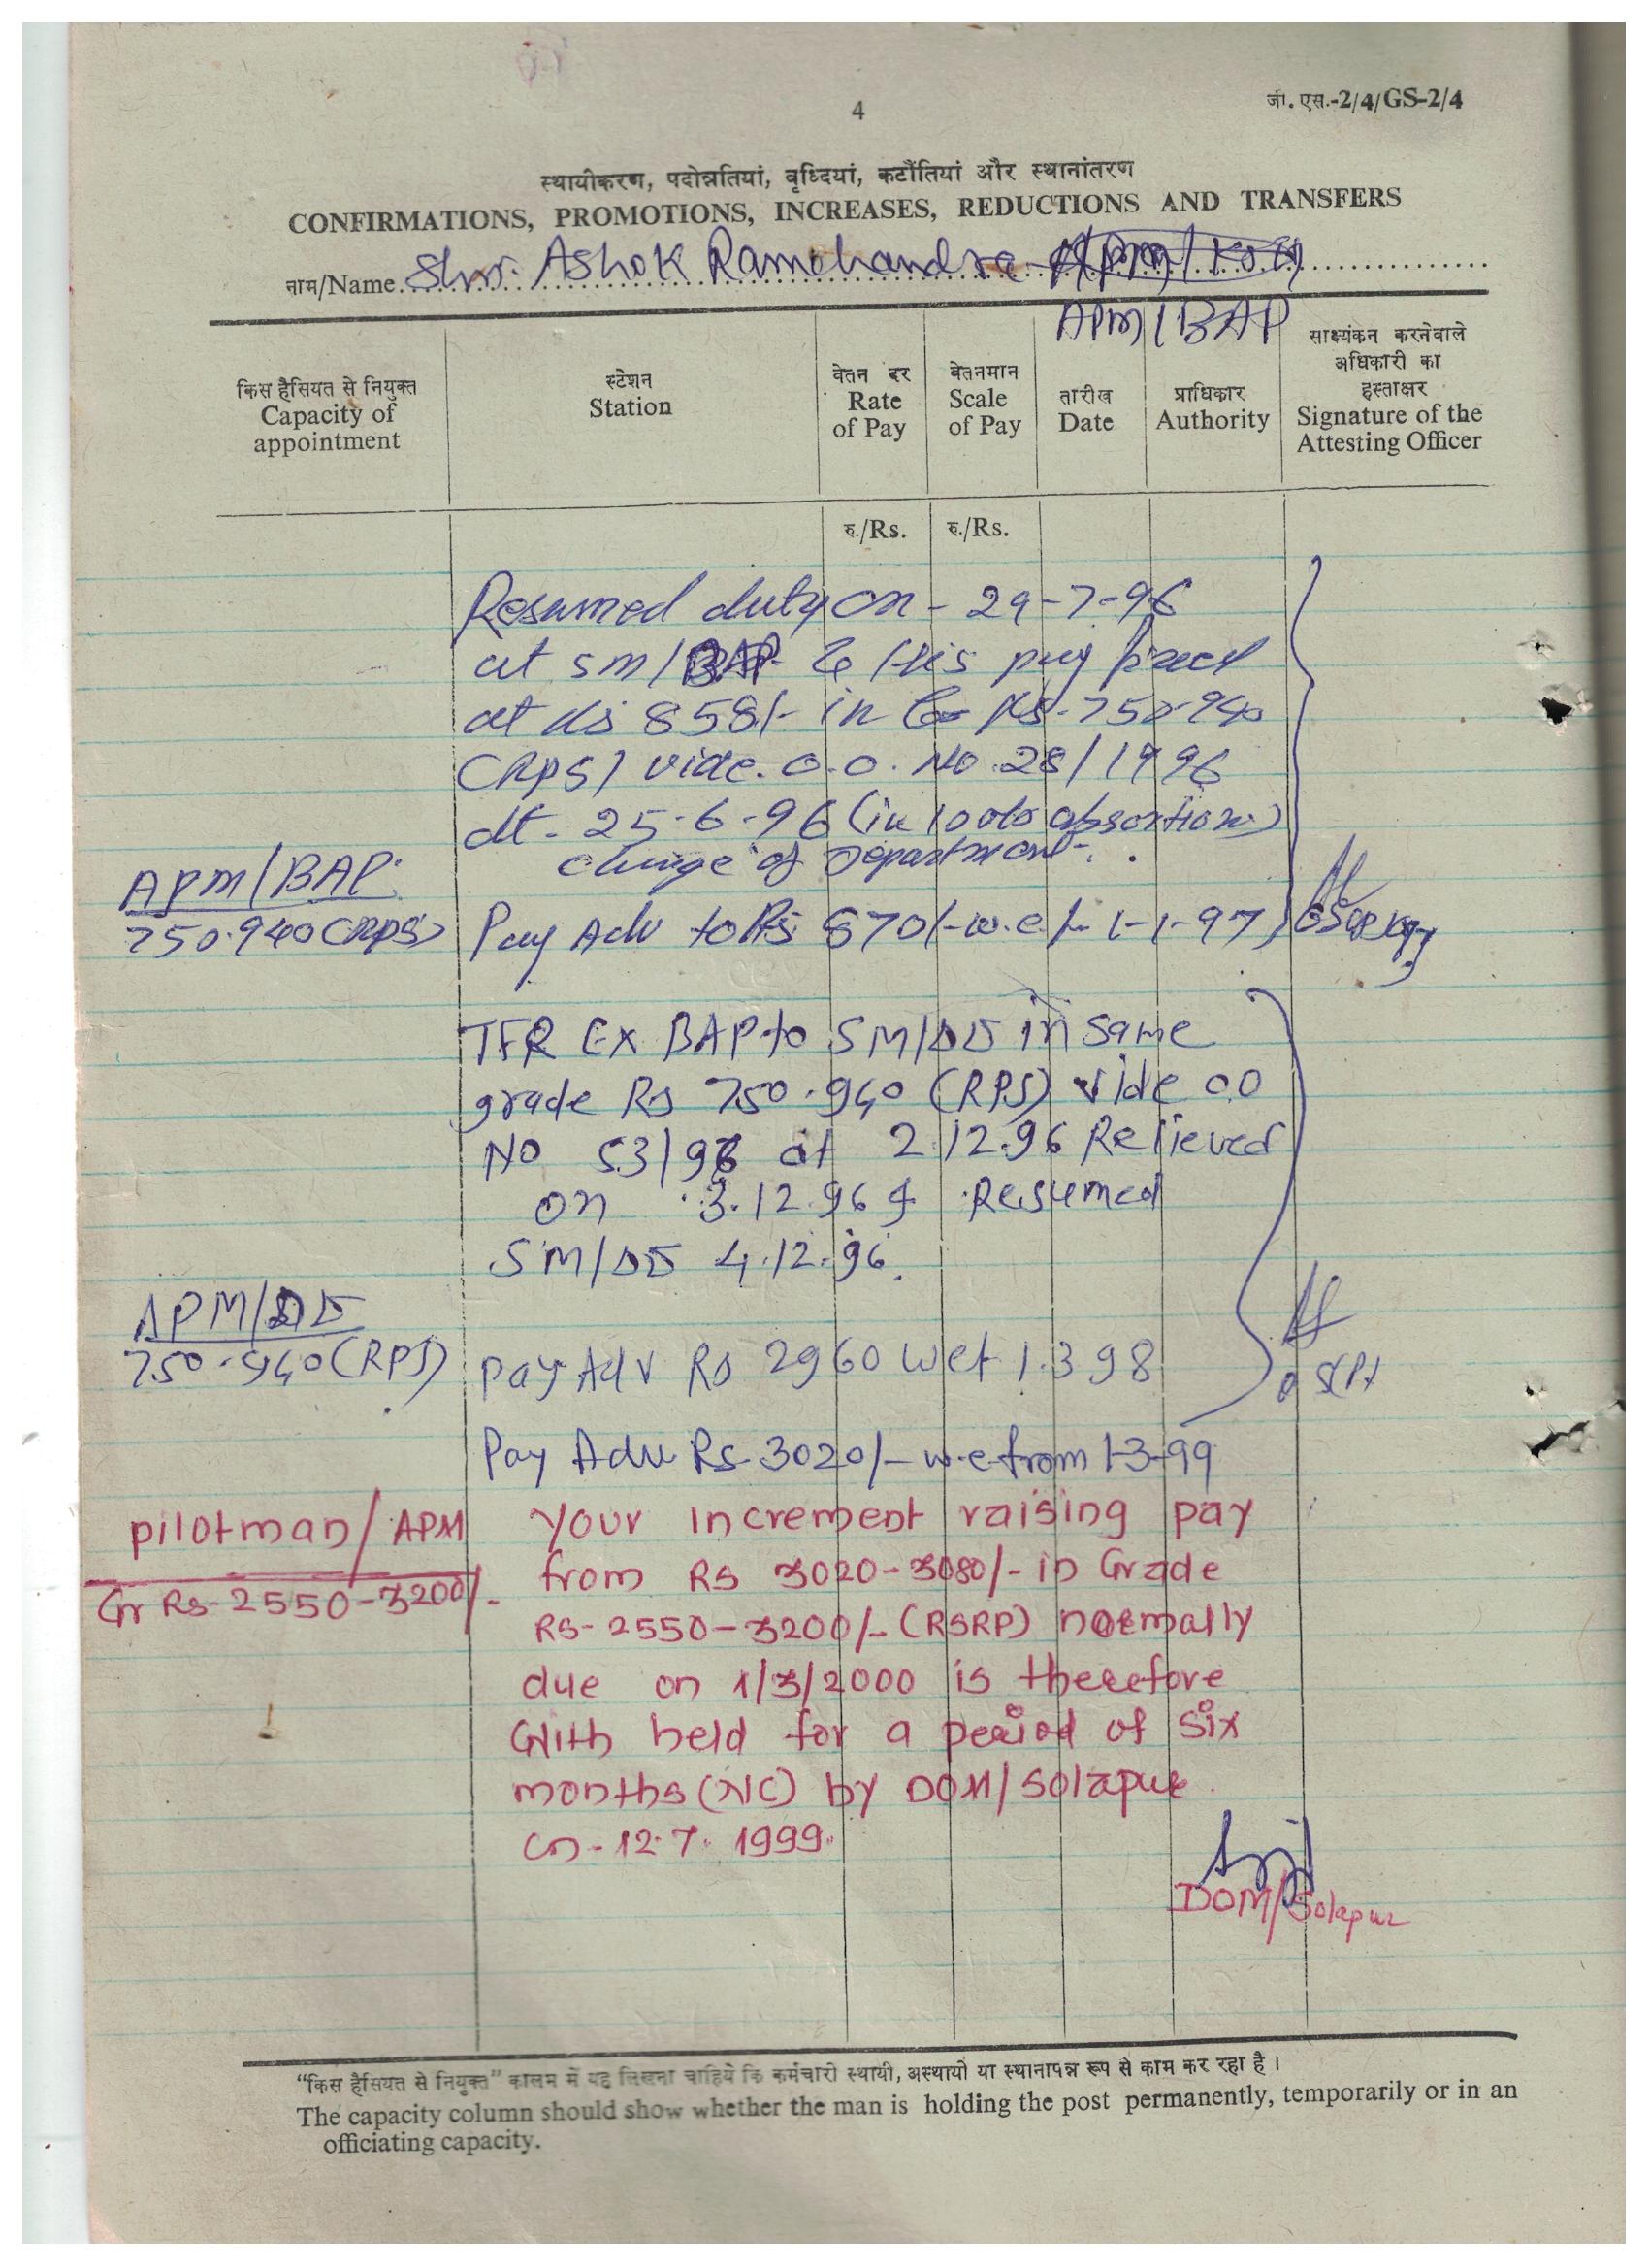 4
जी. एस.-2/4/GS-2/4
स्थायीकरण, पदोन्नतियां, वृध्दियां, कटौंतियां और स्थानांतरण
CONFIRMATIONS, PROMOTIONS, INCREASES, REDUCTIONS AND TRANSFERS
नाम/Name. Shri. Ashok Ramchandra
APM/BAP
किस हैसियत से नियुक्त
Capacity of
appointment
स्टेशन
Station
वेतन दर
Rate
of Pay
वेतनमान
Scale
of Pay
तारीख
Date
प्राधिकार
Authority
साक्ष्यंकन करनेवाले
अधिकारी का
हस्ताक्षर
Signature of the
Attesting Officer
रु./Rs. रु./Rs.
Resumed duty on - 29-7-96
at SM/BAP & His pay fixed
at Rs 858/- in Rs-750-940
(RPS) vide. O.O. No. 28/1996
dt- 25-6-96 (in absortion)
change of Department-.
APM/BAP.
750-940 (RPS)
Pay Adv to Rs 870/- w.e.f. 1-1-97
TFR EX BAP to SM/DD in same
grade Rs 750-940 (RPS) vide OO
NO 53/96 dt 2.12.96 Relieved
on 3.12.96 & Resumed
SM/DD 4.12.96.
APM/DD
750-940 (RPS)
Pay Adv Rs 2960 wef 1.3 98
Pay Adv Rs-3020/- w.e from 1-3-99
pilotman/APM
Gr Rs-2550-3200/-
Your increment raising pay
from Rs 3020-3080/- in Grade
RS-2550-3200/- (RSRP) normally
due on 1/3/2000 is therefore
With held for a period of six
months (NC) by DOM/Solapur
on-12.7.1999.
DOM/Solapur
"किस हैसियत से नियुक्त" कालम में यह लिखना चाहिये कि कर्मचारी स्थायी, अस्थायी या स्थानापन्न रूप से काम कर रहा है।
The capacity column should show whether the man is holding the post permanently, temporarily or in an
officiating capacity.